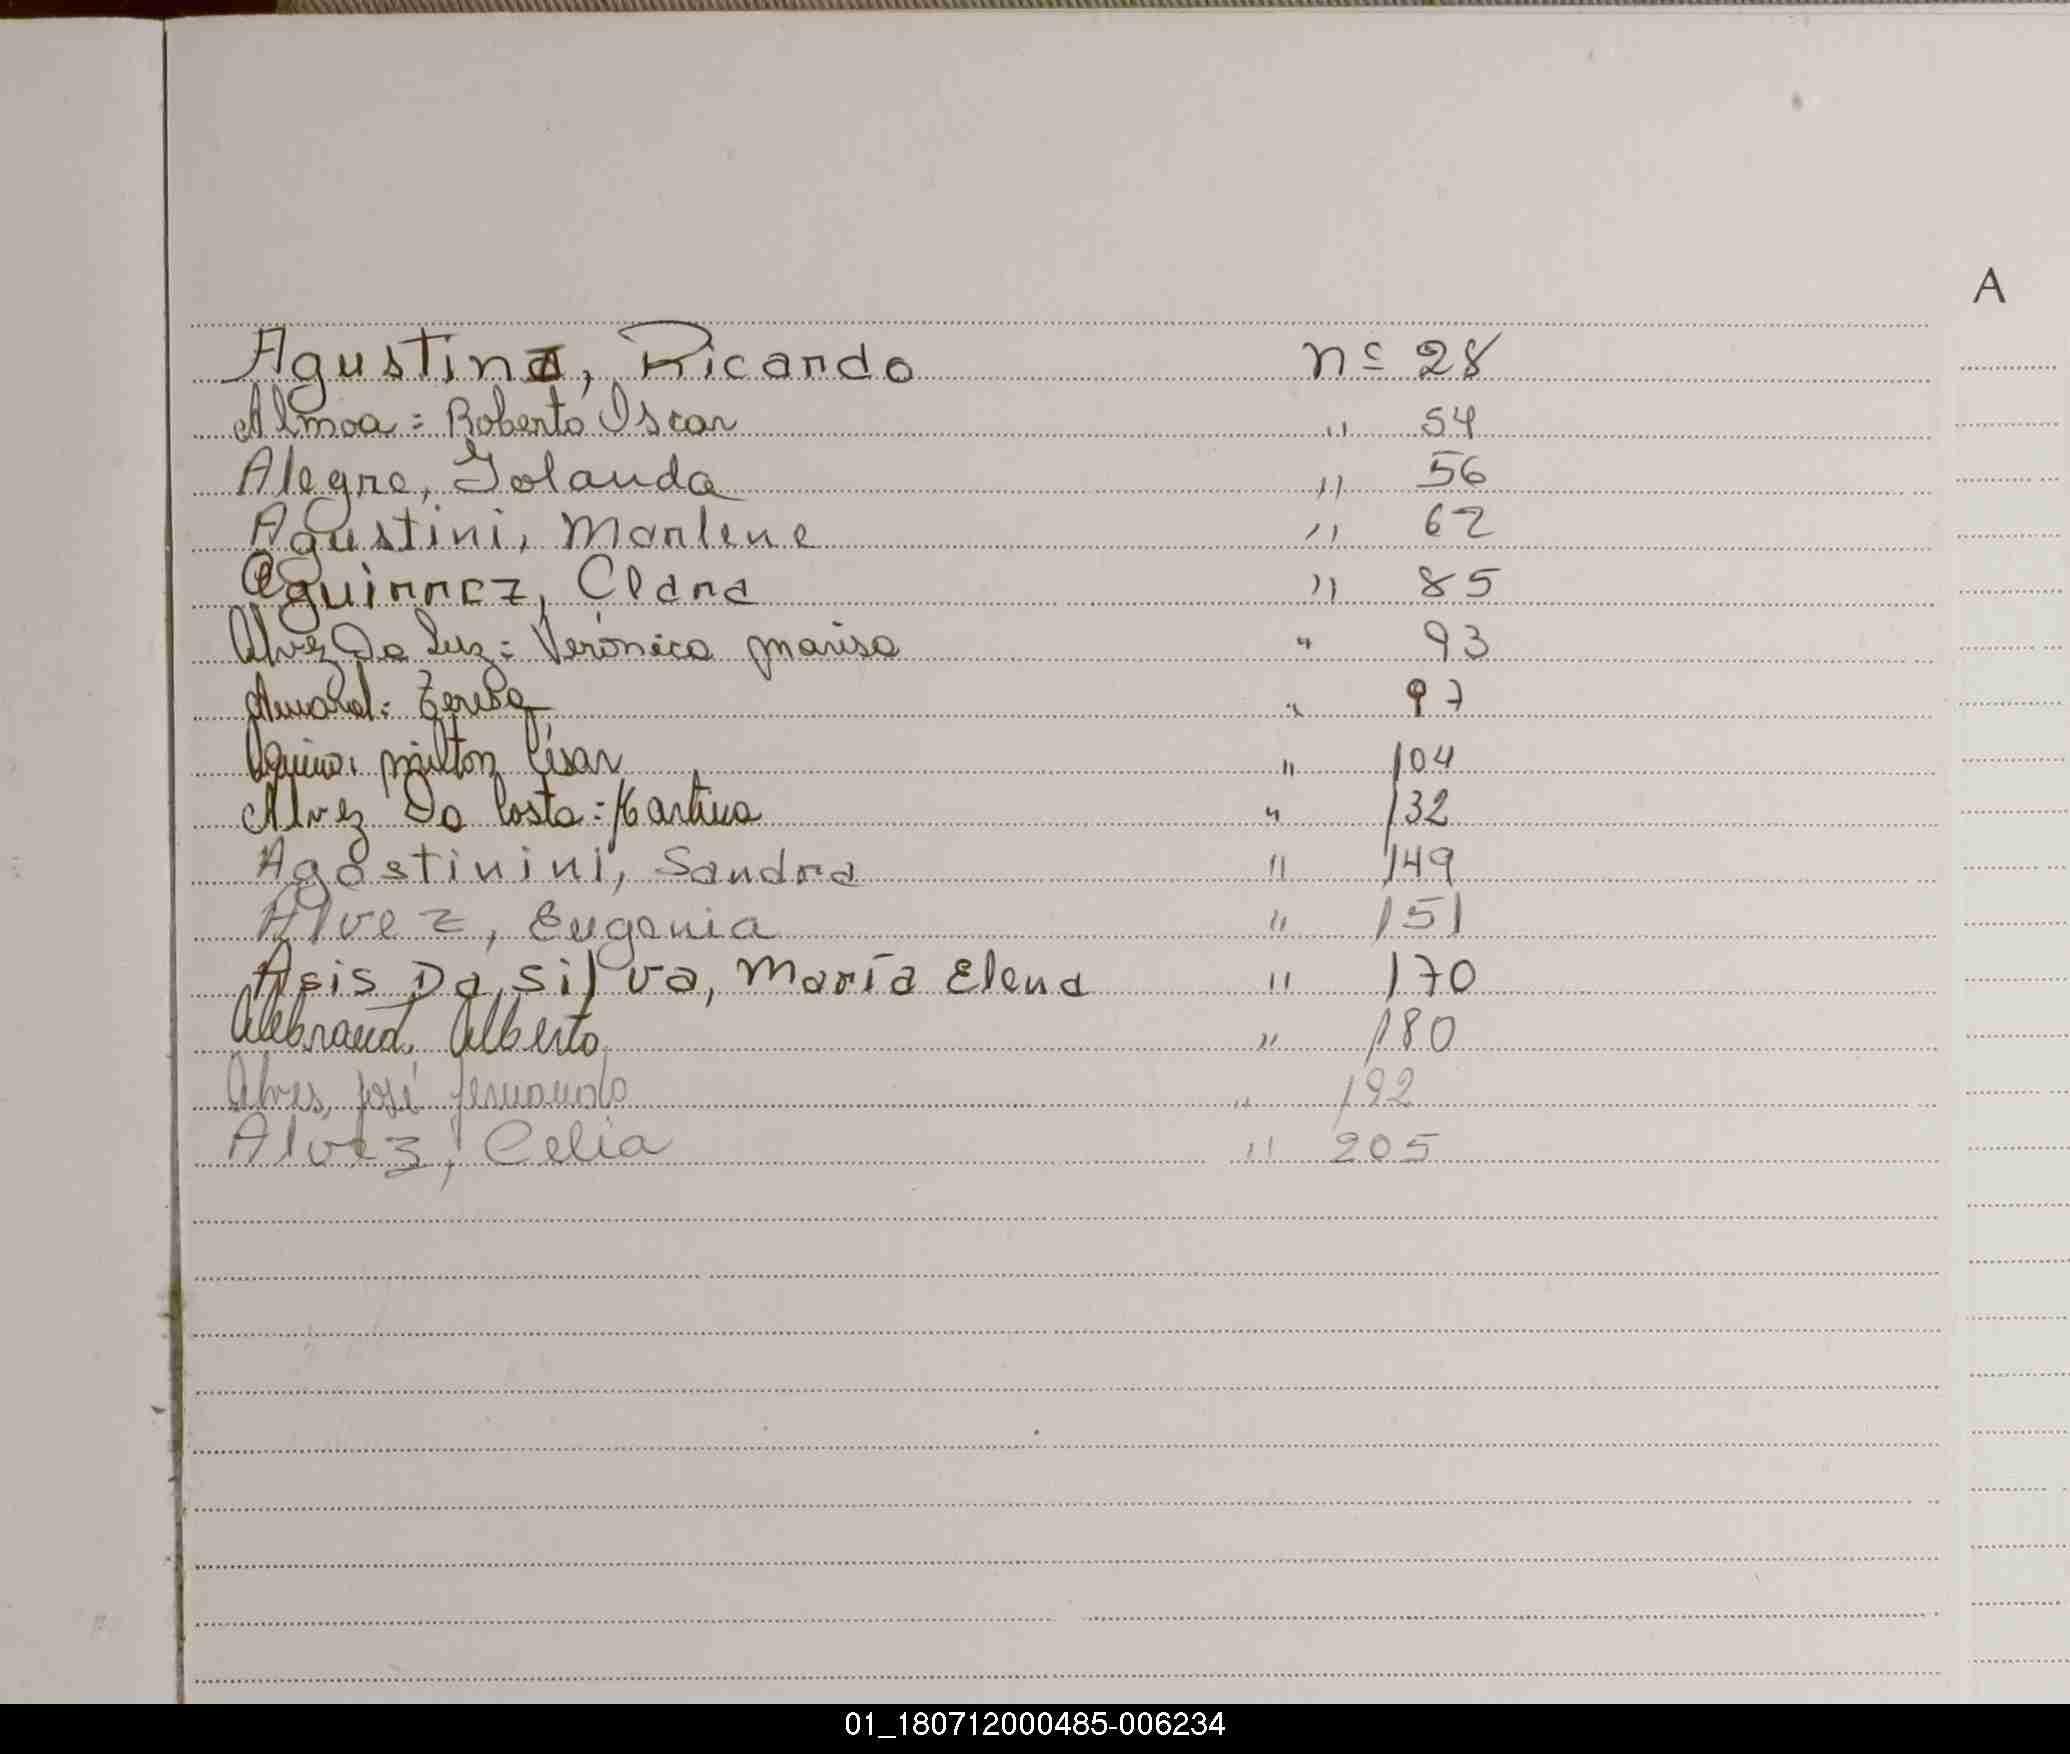 A
Agustina, Ricardo nº 28
Almoa: Roberto Oscar " 54
Alegre, Yolanda " 56
Agustini, Marlene " 62
Aguirrez, Clara " 85
Alvez Da Luz: Verónica Marisa " 93
Amaral: Teresa " 97
Aquino, Milton César " 104
Alvez Da Costa: Martina " 132
Agostinini, Sandra " 149
Alvez, Eugenia " 151
Asis Da Silva, María Elena " 170
Alberto " 180
Alves, José Fernando " 192
Alvez, Celia " 205
01_180712000485-006234